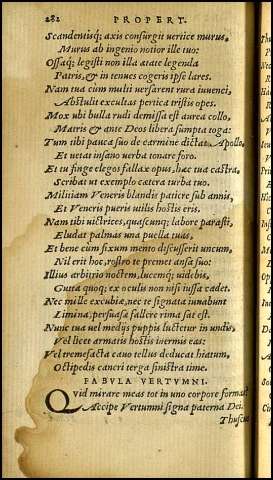 282 PROPERT.
Scandentisq; axis consurgit uertice murus,
Murus ab ingenio notior ille tuo:
Ossaq; legisti non illa ætate legenda
Patris, & in tenues cogeris ipse lares.
Nam tua cùm multi uersarent rura iuuenci,
Abstulit excultas pertica tristis opes.
Mox ubi bulla rudi demissa est aurea collo,
Matris & ante Deos libera sumpta toga:
Tum tibi pauca suo de carmine dictat Apollo,
Et uetat insano uerba tonare foro.
At tu finge elegos fallax opus, hæc tua castra,
Scribat ut exemplo cætera turba tuo.
Militiam Veneris blandis patiere sub armis,
Et Veneris pueris utilis hostis eris.
Nam tibi uictrices, quascunq; labore parasti,
Eludat palmas una puella tuas.
Et bene cùm fixum mento discusserit uncum,
Nil erit hoc, rostro te premet ansa suo:
Illius arbitrio noctem, lucemq; uidebis,
Gutta quoq; ex oculis non nisi iussa cadet.
Nec mille excubiæ, nec te signata iuuabunt
Limina; persuasa fallere rima sat est.
Nunc tua uel medijs puppis luctetur in undis,
Vel licet armatis hostis inermis eas:
Vel tremefacta cauo tellus deducat hiatum,
Octipedis cancri terga sinistra time.
FABULA VERTUMNI.
Quid mirare meas tot in uno corpore formas?
Accipe Vertumni signa paterna Dei.
Thuscus